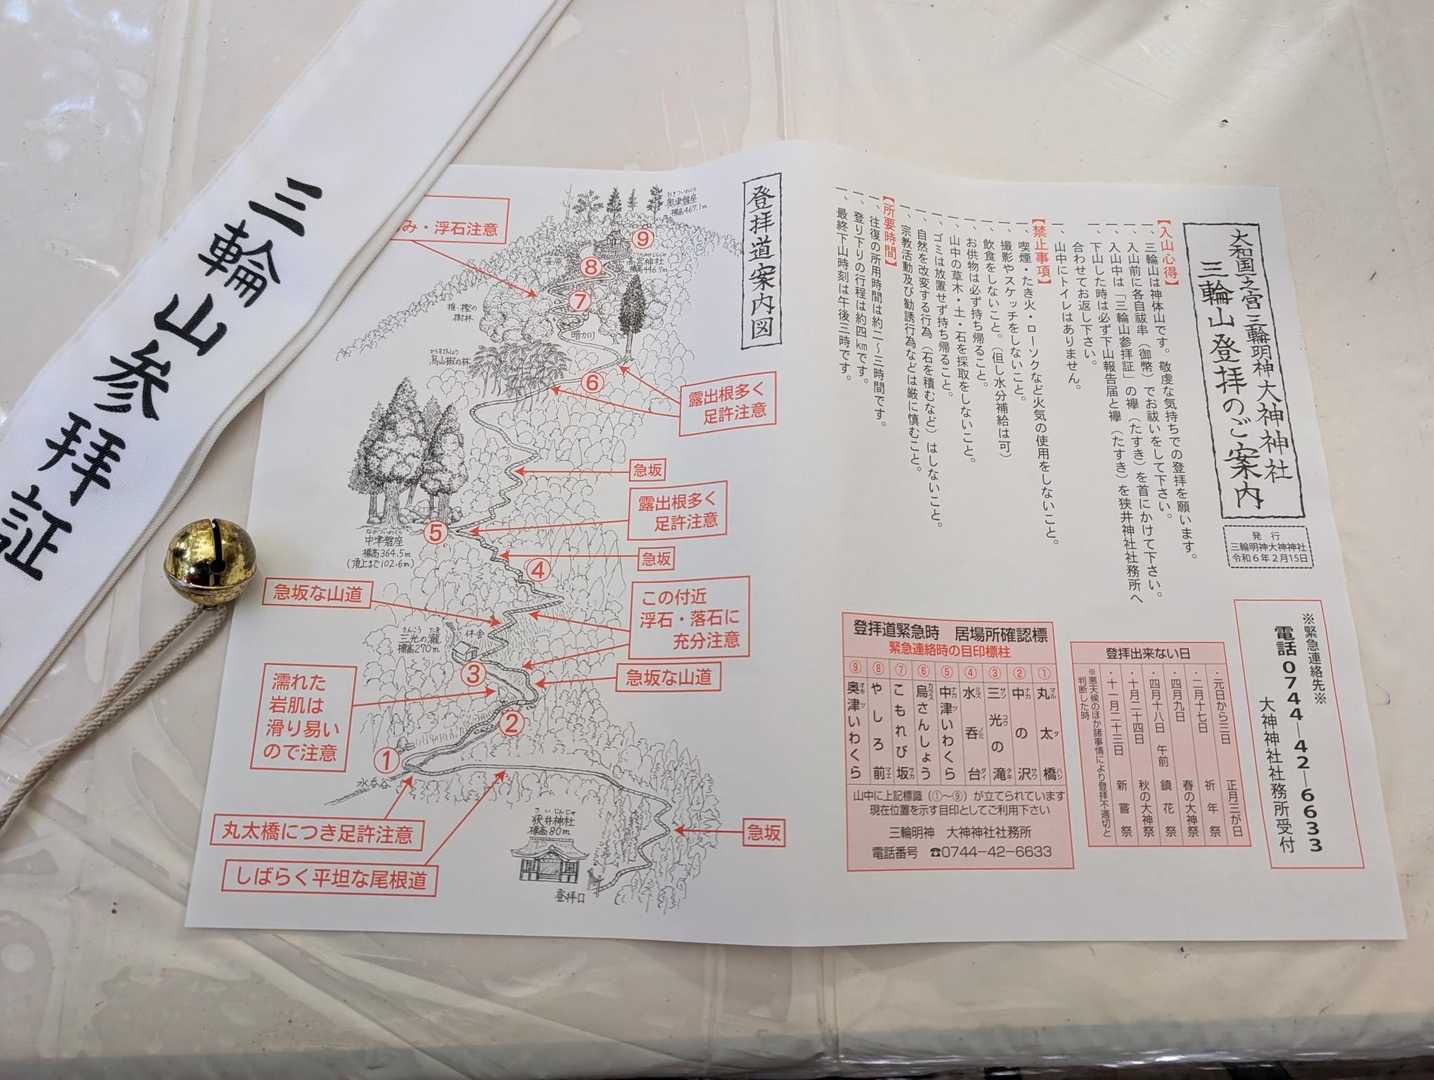 三輪山参拝証
大和国之宮三輪明神大神神社
三輪山登拝のご案内
発行
三輪明神大神神社
令和6年2月15日
【入山心得】
一、三輪山は神体山です。敬虔な気持ちでの登拝を願います。
一、入山前に各自祓串（御幣）でお祓いをして下さい。
一、入山中は「三輪山参拝証」の襷（たすき）を首にかけて下さい。
一、下山した時は必ず下山報告届と襷（たすき）を狭井神社社務所へ
合わせてお返し下さい。
一、山中にトイレはありません。
【禁止事項】
一、喫煙・たき火・ローソクなど火気の使用をしないこと。
一、撮影やスケッチをしないこと。
一、飲食をしないこと。（但し水分補給は可）
一、お供物は必ず持ち帰ること。
一、山中の草木・土・石を採取をしないこと。
一、ゴミは放置せず持ち帰ること。
一、自然を改変する行為（石を積むなど）はしないこと。
一、宗教活動及び勧誘行為などは厳に慎むこと。
【所要時間】
一、往復の所用時間は約二〜三時間です。
一、登り下りの行程は約四㎞です。
一、最終下山時刻は午後三時です。
※緊急連絡先※
電話0744ー42ー6633
大神神社社務所受付
登拝出来ない日
・元日から三日 正月三が日
・二月十七日 祈年祭
・四月九日 春の大神祭
・四月十八日 午前 鎮花祭
・十月二十四日 秋の大神祭
・十一月二十三日 新嘗祭
※悪天候のほか諸事情により登拝不適切と
判断した時
登拝道緊急時 居場所確認標
緊急連絡時の目印標柱
① 丸太橋
② 中の沢
③ 三光の滝
④ 水呑台
⑤ 中津いわくら
⑥ 烏さんしょう
⑦ こもれび坂
⑧ やしろ前
⑨ 奥津いわくら
山中に上記標識（①〜⑨）が立てられています
現在位置を示す目印としてご利用下さい
三輪明神 大神神社社務所
電話番号 ☎0744ー42ー6633
登拝道案内図
おきついわくら
奥津磐座
標高467.1m
み・浮石注意
⑨
⑧
⑦
⑥
露出根多く
足許注意
急坂
露出根多く
足許注意
⑤
中津磐座
標高364.5m
(頂上まで102.6m)
急坂
④
急坂な山道
この付近
浮石・落石に
充分注意
三光の瀧
標高270m
休舎
③
急坂な山道
濡れた
岩肌は
滑り易い
ので注意
②
①
水呑谷
丸太橋につき足許注意
さいじんじゃ
狭井神社
標高80m
急坂
しばらく平坦な尾根道
登拝口